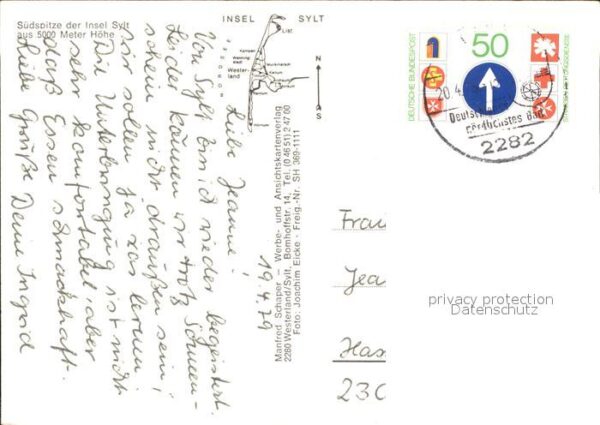 Südspitze der Insel Sylt
aus 5000 Meter Höhe
INSEL SYLT
List
Kampen
Westerland
N
S
Manfred Schaper – Werbe- und Ansichtskartenverlag
2280 Westerland/Sylt, Bomhoffstr. 14, Tel. (0 46 51) 2 47 60
Foto: Joachim Eicke - Freig.-Nr. SH 369-1111
19.4.79
Liebe Jeanne!
Von Sylt bin ich wieder begeistert.
Leider können wir trotz Sonnen-
schein nicht draußen sein;
wir sollen ja was lernen.
Die Unterbringung ist nicht
sehr komfortabel, aber
das Essen schmackhaft.
Liebe Grüße Deine Ingrid
DEUTSCHE BUNDESPOST
50
20.4.
nördlichstes Bad
2282
Frau
Jea
Has
230
privacy protection
Datenschutz